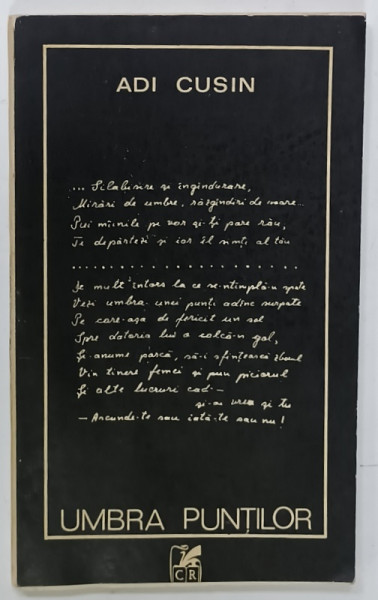 ADI CUSIN
... Silabisire și îngîndurare,
Mirări de umbre, răzgîndiri de mare...
Pui mîinile pe vor și-ți pare rău,
Te depărtezi și iar îl simți al tău
........................
De mult întors la ce se-ntîmplă-n spate
Vezi umbra unei punți adînc surpate
Pe care-așa de fericit un sol
Spre datoria lui o calcă-n gol,
Și-anume parcă, să-i sfințească zborul
Vin tinere femei și pun piciorul
Și alte lucruri cad -
și-ai vrea și tu
- Ascunde-te sau iată-te sau nu!
UMBRA PUNȚILOR
CR